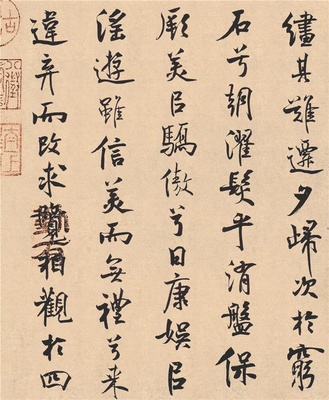 繣其難遷夕歸次於窮
石兮朝濯髮乎洧盤保
厥美㠯驕傲兮日康娛㠯
淫遊雖信美而無禮兮来
違棄而改求覽相觀於四